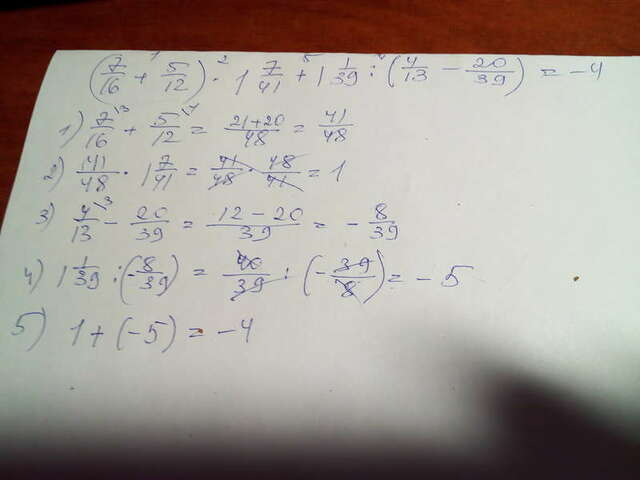 (7/16 + 5/12) · 1 7/41 + 1 1/39 : (4/13 − 20/39) = −4
1) 7/16 + 5/12 = 21+20/48 = 41/48
2) 41/48 · 1 7/41 = 41/48 · 48/41 = 1
3) 4/13 − 20/39 = 12−20/39 = −8/39
4) 1 1/39 : (−8/39) = 40/39 : (−39/8) = −5
5) 1+(−5) = −4